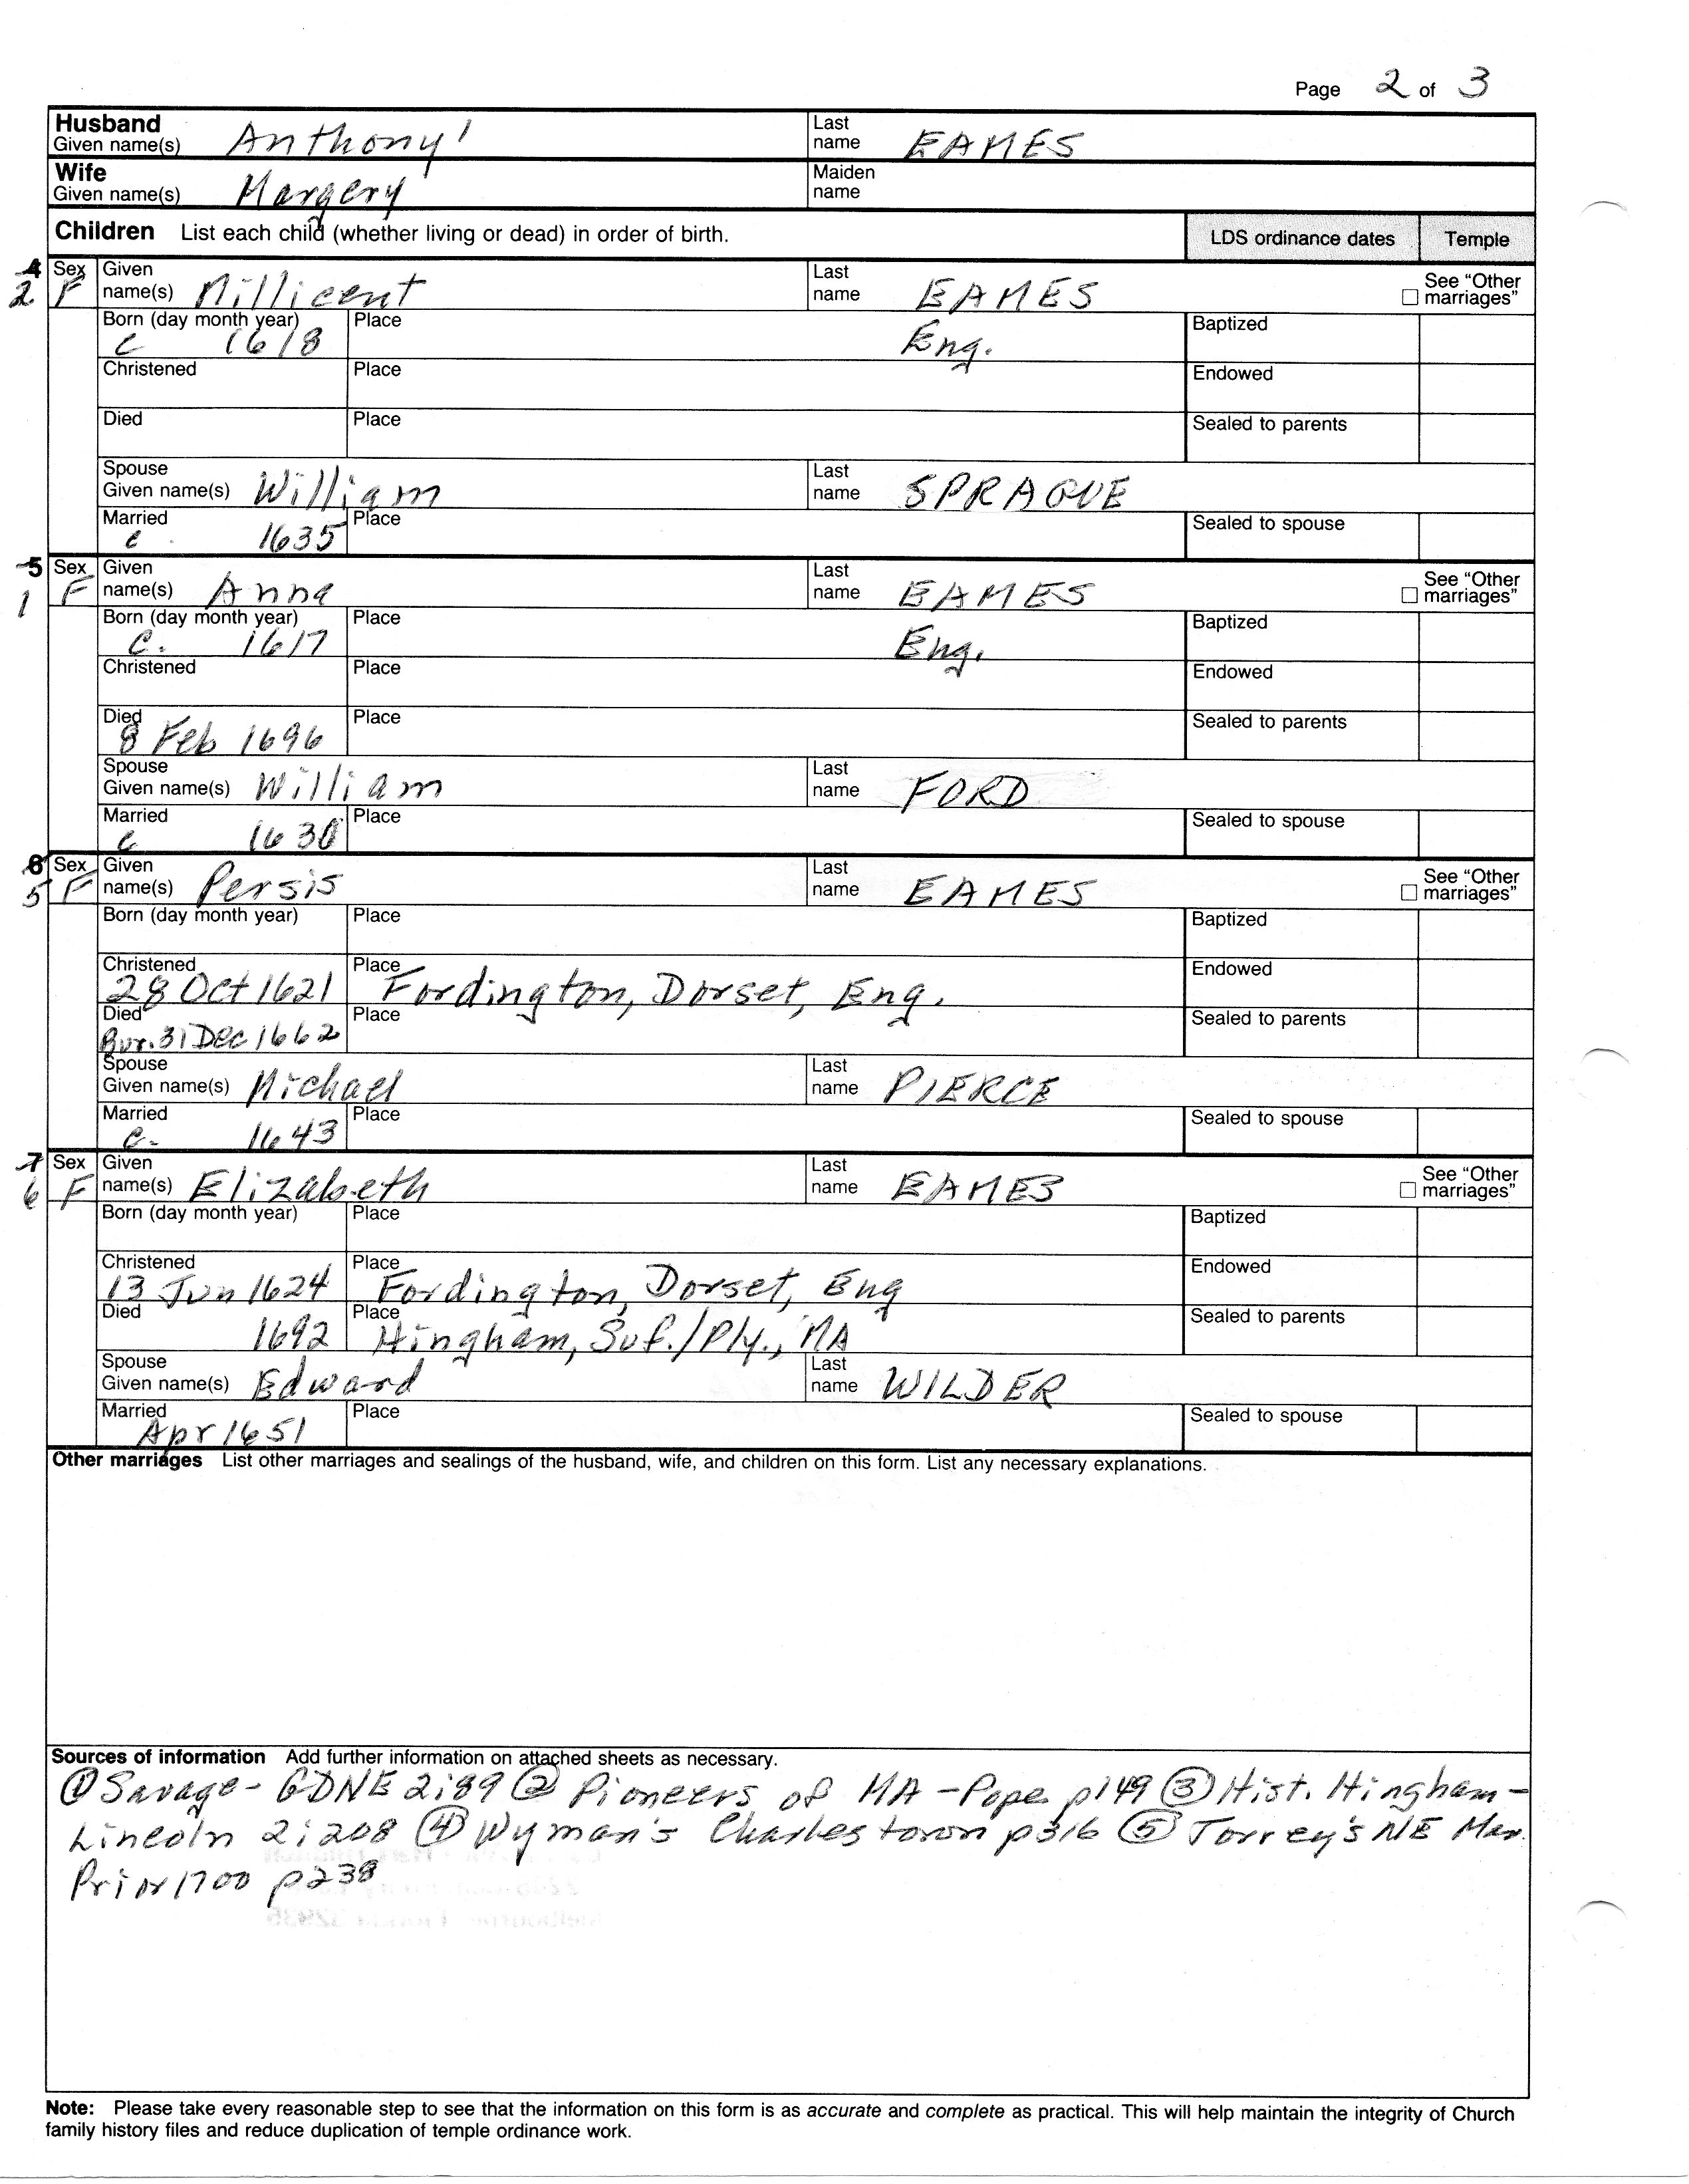 Page 2 of 3
Husband Given name(s) Anthony' Last name EAMES
Wife Given name(s) Margery Maiden name
Children List each child (whether living or dead) in order of birth. LDS ordinance dates Temple
4 2 Sex F Given name(s) Millicent Last name EAMES See "Other marriages"
Born (day month year) c 1618 Place Eng. Baptized
Christened Place Endowed
Died Place Sealed to parents
Spouse Given name(s) William Last name SPRAGUE
Married c. 1635 Place Sealed to spouse
5 1 Sex F Given name(s) Anna Last name EAMES See "Other marriages"
Born (day month year) C. 1617 Place Eng. Baptized
Christened Place Endowed
Died 8 Feb 1696 Place Sealed to parents
Spouse Given name(s) William Last name FORD
Married c Place Sealed to spouse
6 5 Sex F Given name(s) Persis Last name EAMES See "Other marriages"
Born (day month year) Place Baptized
Christened 28 Oct 1621 Place Fordington, Dorset, Eng. Endowed
Died Bur. 31 Dec 1662 Place Sealed to parents
Spouse Given name(s) Michael Last name PIERCE
Married C. 1643 Place Sealed to spouse
7 6 Sex F Given name(s) Elizabeth Last name EAMES See "Other marriages"
Born (day month year) Place Baptized
Christened 13 Jun 1624 Place Fordington, Dorset, Eng Endowed
Died 1692 Place Hingham, Suf./Ply., MA Sealed to parents
Spouse Given name(s) Edward Last name WILDER
Married Apr 1651 Place Sealed to spouse
Other marriages List other marriages and sealings of the husband, wife, and children on this form. List any necessary explanations.
Sources of information Add further information on attached sheets as necessary.
① Savage - GDNE 2:89 ② Pioneers of MA - Pope p149 ③ Hist. Hingham -
Lincoln 2:208 ④ Wyman's Charlestown p316 ⑤ Torrey's NE Mar.
Prior 1700 p238
Note: Please take every reasonable step to see that the information on this form is as accurate and complete as practical. This will help maintain the integrity of Church
family history files and reduce duplication of temple ordinance work.